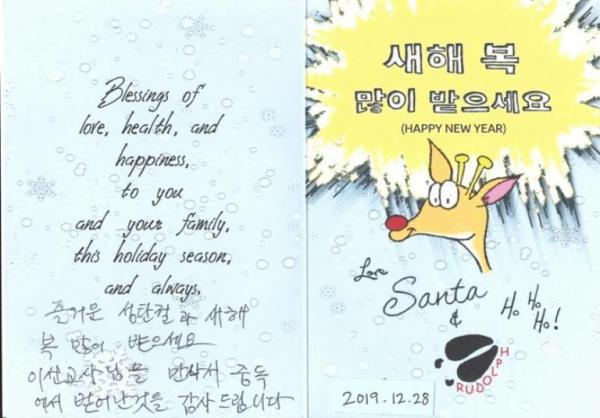 Blessings of
love, health, and
happiness,
to you
and your family,
this holiday season,
and always,
즐거운 성탄절과 새해
복 많이 받으세요
이선교사님을 만나서 중독
에서 벗어난것을 감사 드립니다
새해 복
많이 받으세요
(HAPPY NEW YEAR)
Love
Santa
&
Ho Ho
Ho!
RUDOLPH
2019.12.28